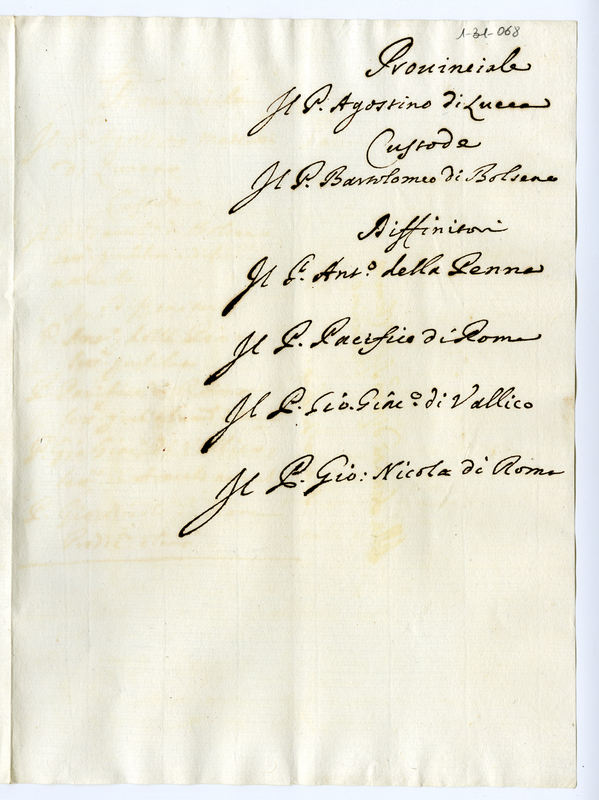 1-31-068
Prouinciale
Il P. Agostino di Lucca
Custode
Il P. Bartolomeo di Bolsena
Diffinitori
Il P. Ant.º della Penna
Il P. Pacifico di Roma
Il P. Gio. di Vallico
Il P. Gio: Nicola di Roma